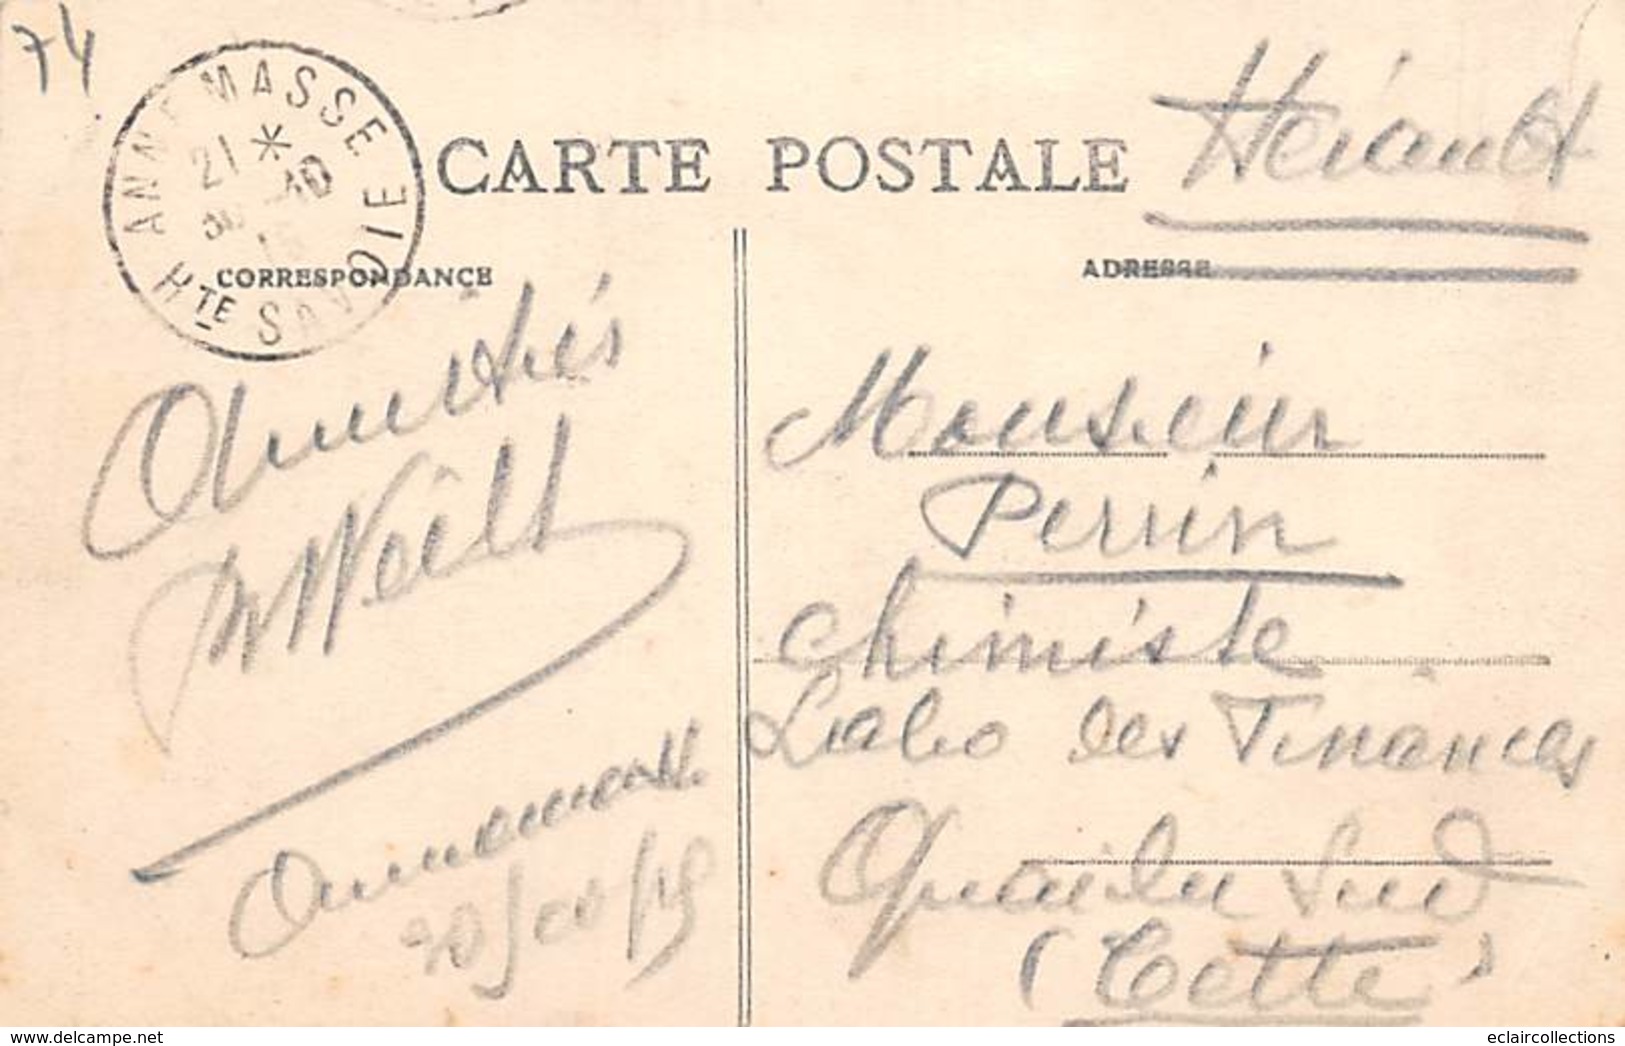 74
ANNEMASSE
21 *
30 -10
15
Hte SAVOIE
CARTE POSTALE
Hérault
CORRESPONDANCE
ADRESSE
Amitiés
Annemasse
Monsieur
Perrin
Chimiste
Labo des Finances
Quai du Sud
(Cette)
www.delcampe.net
eclaircollections